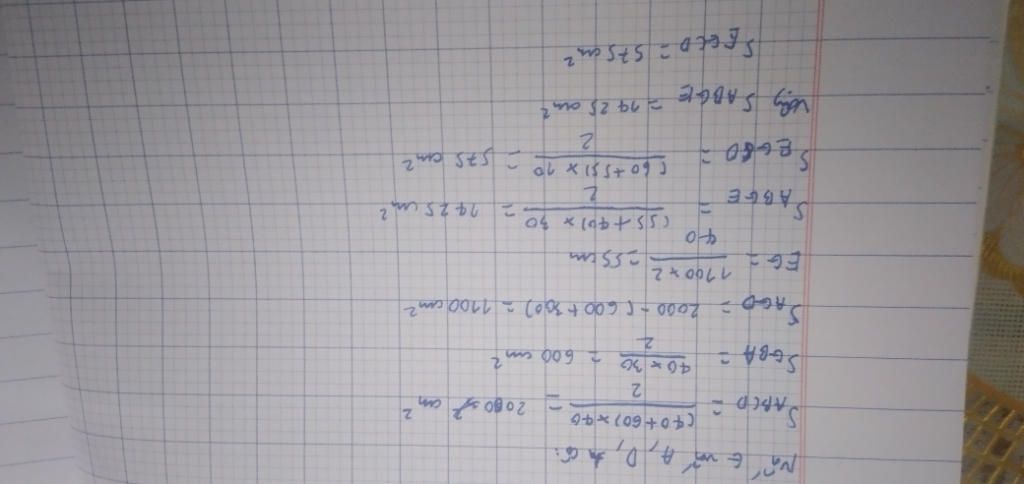 Nối E với A, D, ta có:
S ABCD = (40 + 60) × 40 / 2 = 2000 cm²
S GBA = 40 × 30 / 2 = 600 cm²
S AGD = 2000 - (600 + 300) = 1100 cm²
EG = 1100 × 2 / 40 = 55 cm
S ABGE = (55 + 40) × 30 / 2 = 1425 cm²
S EGCD = (60 + 55) × 10 / 2 = 575 cm²
Vậy S ABGE = 1425 cm²
S EGCD = 575 cm²